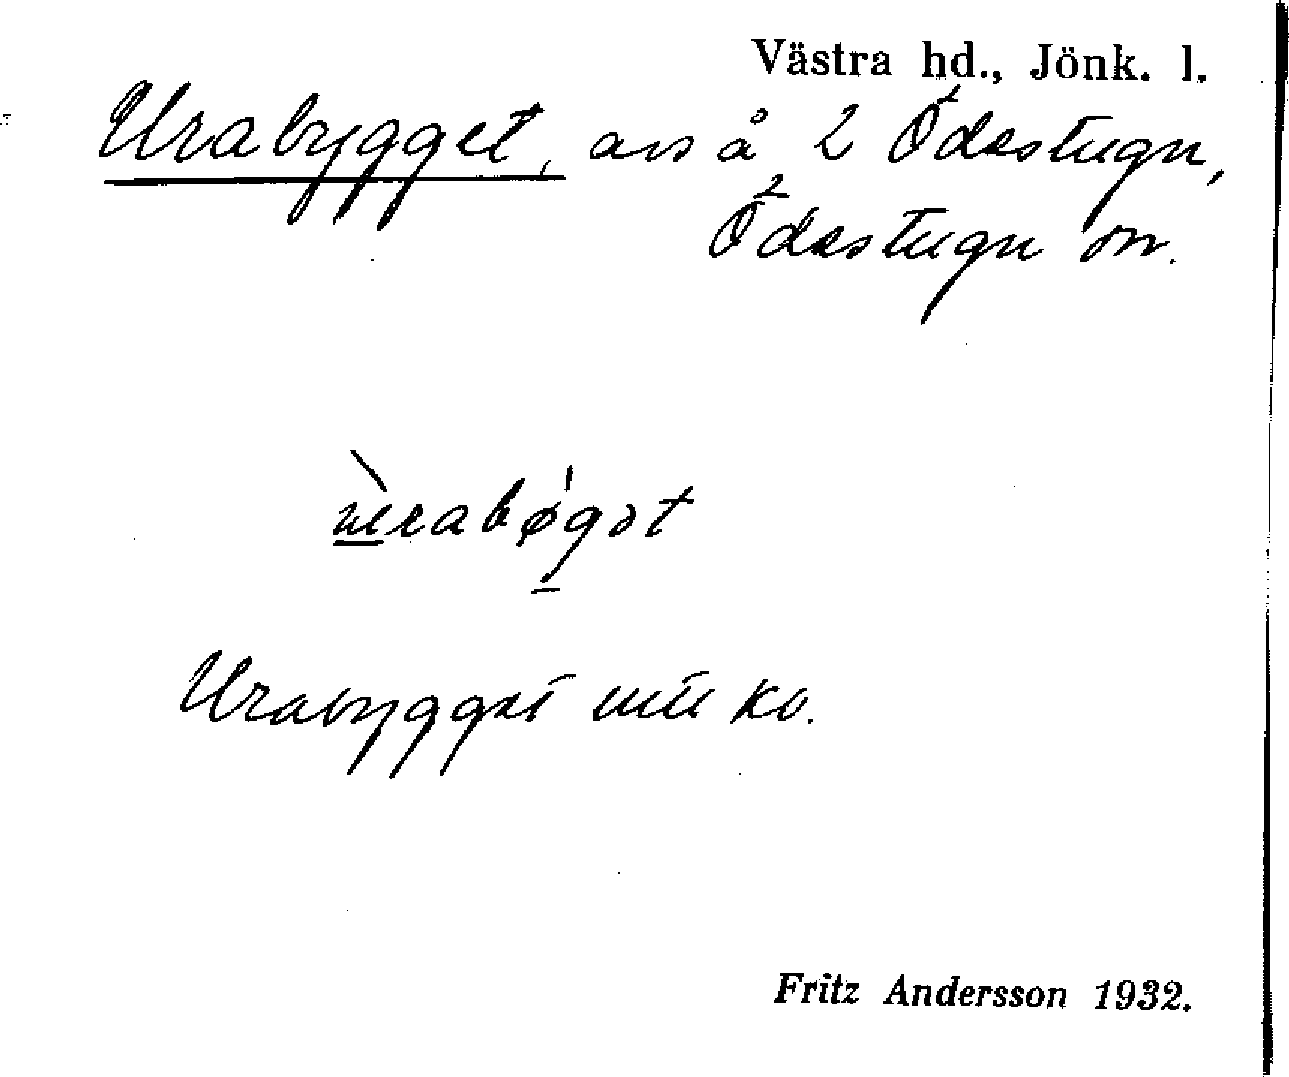 Västra hd., Jönk. l.
Urabygget, avs å 2 Ödestugu,
Ödestugu sn.
ùrabø̀gət
Urabygget mtl kb.
Fritz Andersson 1932.